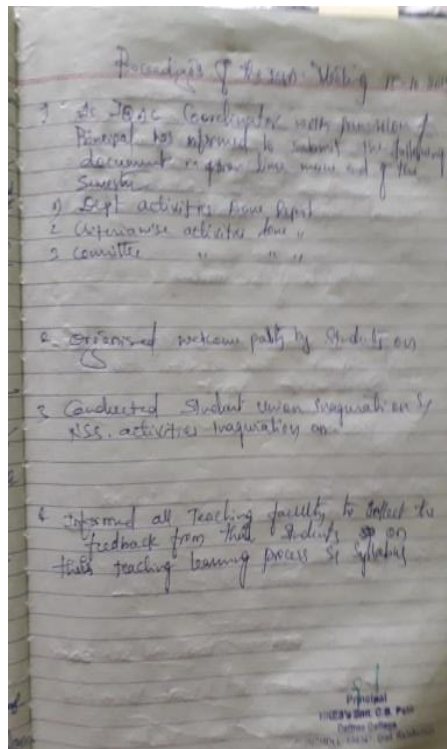 Proceedings of the Meeting
As IQAC Coordinator with permission of
Principal has informed to submit the following
document in given time end of the
Semester
1) Dept activities Done Report
2 Criteriawise activities done "
3 Committee " " "
Organised welcome party by Students on
3 Conducted Student Union Inaguration &
NSS. activities Inaguration on
4 Informed all Teaching faculty to collect the
feedback from their Students on
their teaching learning process & Syllabus
Principal
Smt. C.B.
College